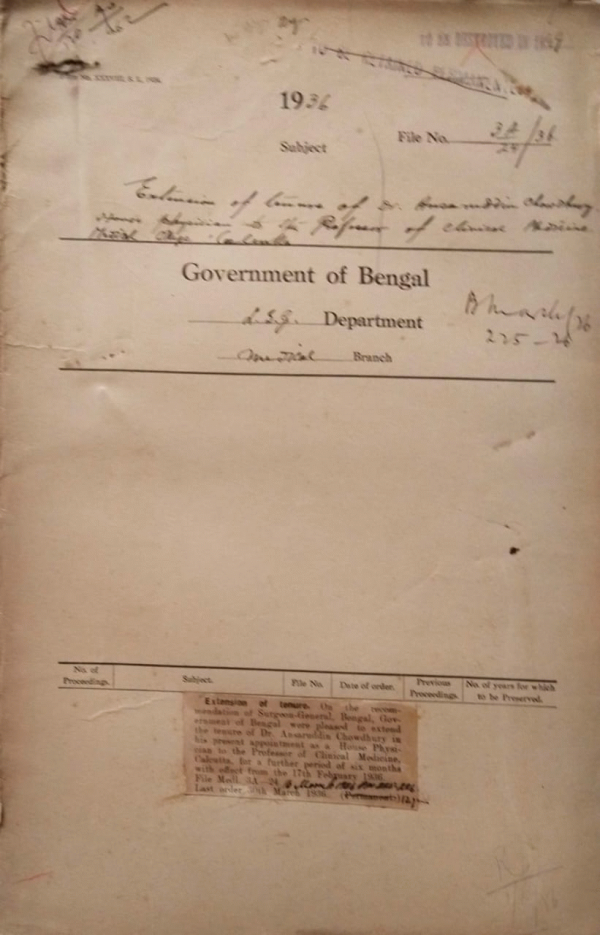 TO BE DESTROYED IN
TO BE RETAINED PERMANENTLY
1936
Subject
File No. 3A/24/36
Extension of tenure of Dr. Ansaruddin Chowdhury
House Physician to the Professor of Clinical Medicine
Medical College Calcutta
Government of Bengal
L.S.G. Department
B March/36
225-26
Medical Branch
No. of Proceedings. Subject. File No. Date of order. Previous Proceedings. No. of years for which to be Preserved.
Extension of tenure. On the recom-
mendation of Surgeon-General, Bengal, Gov-
ernment of Bengal were pleased to extend
the tenure of Dr. Ansaruddin Chowdhury in
his present appointment as a House Physi-
cian to the Professor of Clinical Medicine,
Calcutta, for a further period of six months
with effect from the 17th February 1936.
File Medl. 3A—24
Last order 30th March 1936. (Permanent)